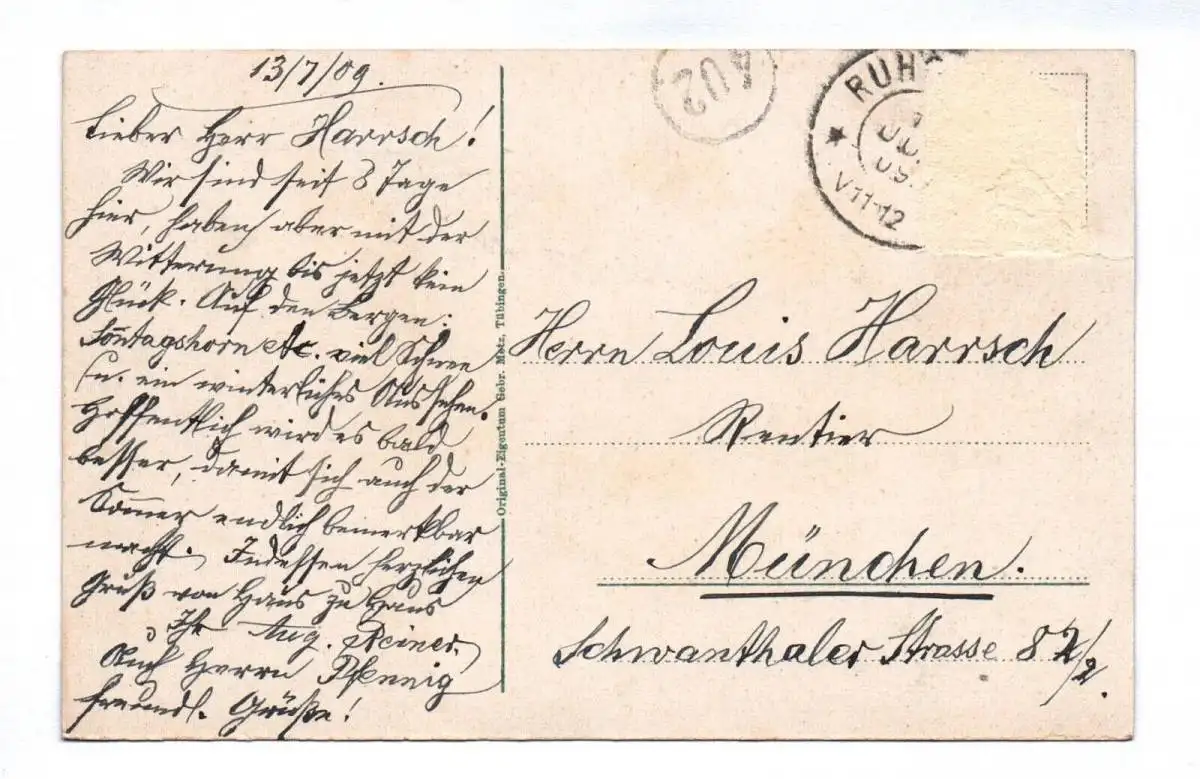 13/7/09.
Lieber Herr Harrsch!
Wir sind seit 3 Tage
hier, haben aber mit der
Witterung bis jetzt kein
Glück. Auf den Bergen:
Sonntagshorn etc. viel Schnee
u. ein winterliches Aussehen.
Hoffentlich wird es bald
besser, damit sich auch der
Sommer endlich bemerkbar
macht. Indessen herzlichen
Gruß von Haus zu Haus
Ihr Aug. Reiner.
Auch Herrn Pfennig
freundl. Grüße!
Original-Eigentum Gebr. Metz, Tübingen.
4U2
RUH
JU
09
V11-12
Herrn Louis Harrsch
Rentier
München.
Schwanthaler Strasse 82/2.